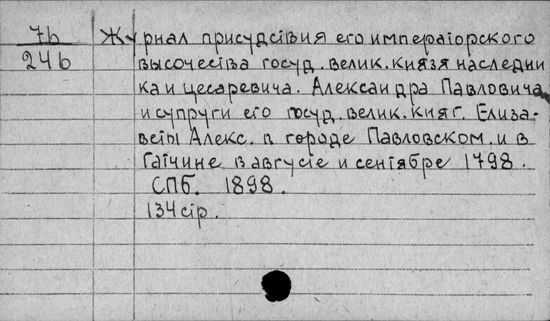 7b Журнал присудствия его императорского
24b высочества госуд. велик. князя наследни
ка и цесаревича. Александра Павловича
и супруги его госуд. велик. княг. Елиза-
веты Алекс. в городе Павловском. и в
Гатчине в августе и сентябре 1798.
СПб. 1898.
134 стр.